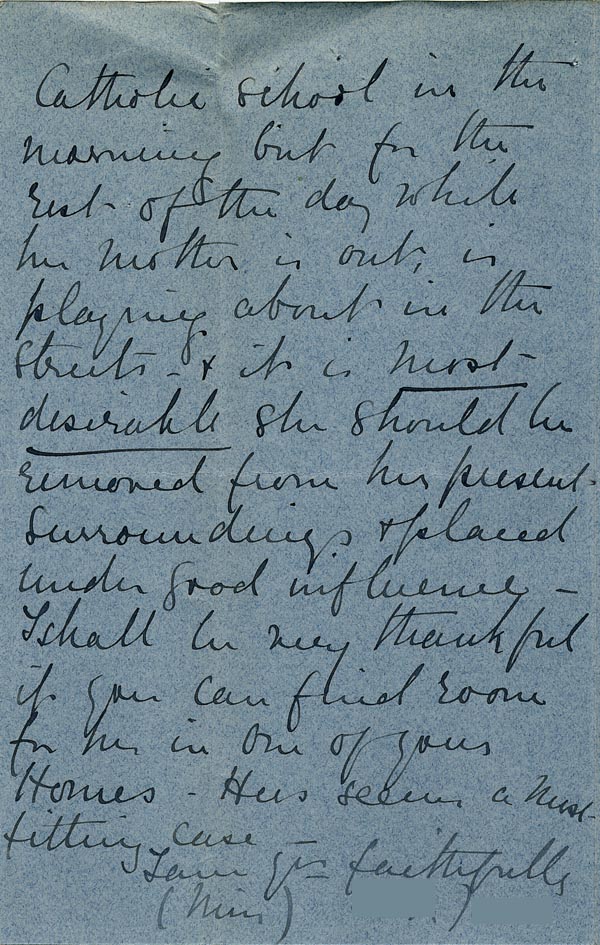 Catholic school in the
morning but for the
rest of the day while
her mother is out, is
playing about in the
streets - & it is most
desirable she should be
removed from her present
surroundings & placed
under good influence -
I shall be very thankful
if you can find room
for her in one of your
Homes - Hers seems a most
fitting case
I am yrs faithfully
(Miss)